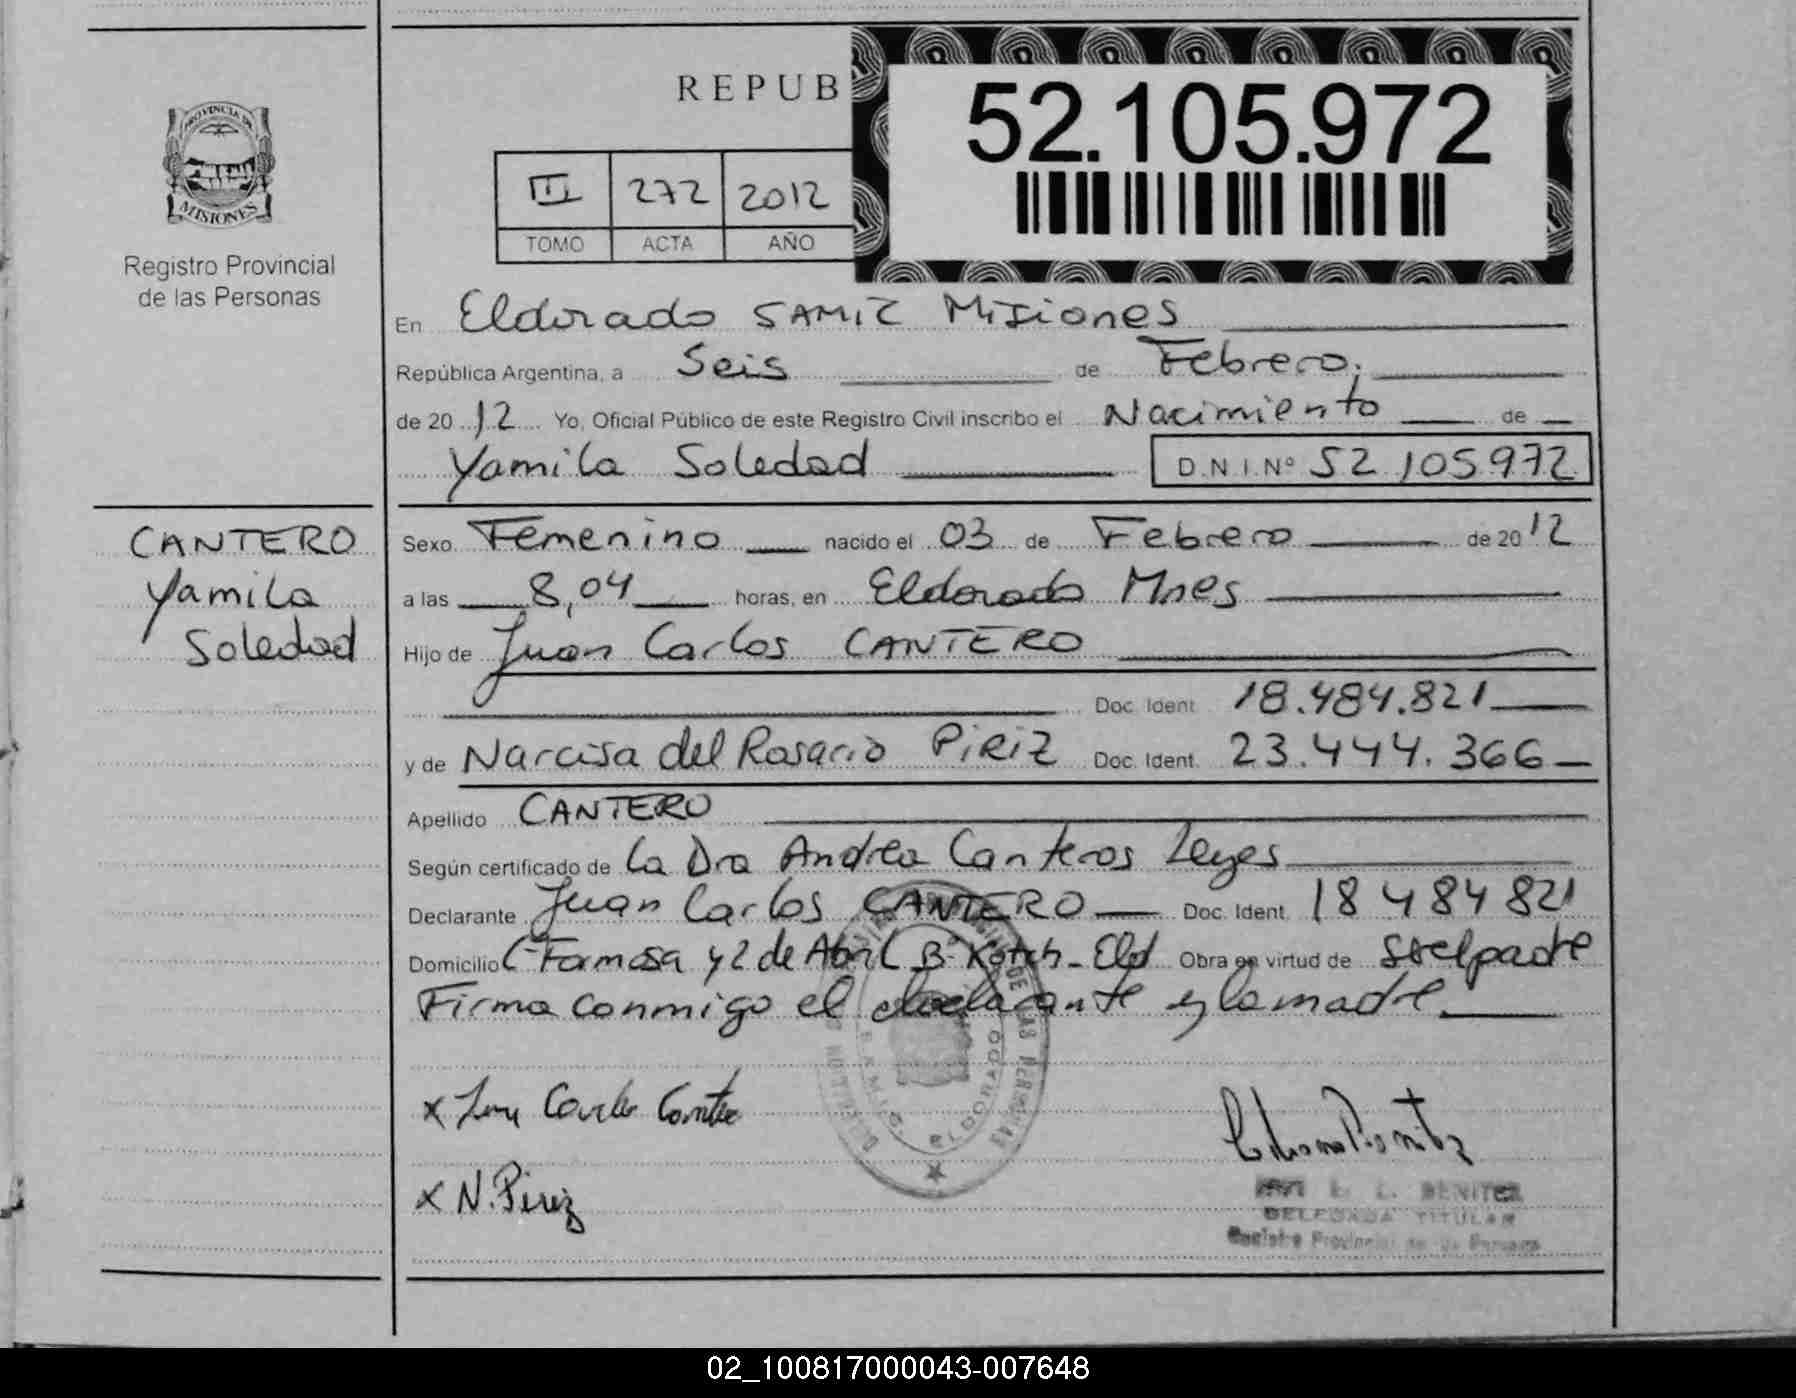 PROVINCIA DE
MISIONES
Registro Provincial
de las Personas
REPUB
52.105.972
III 272 2012
TOMO ACTA AÑO
En Eldorado SAMIC Misiones
República Argentina, a Seis de Febrero,
de 2012 Yo, Oficial Público de este Registro Civil inscribo el Nacimiento de
Yamila Soledad D.N.I.Nº 52.105972
CANTERO
Yamila
Soledad
Sexo Femenino nacido el 03 de Febrero de 2012
a las 8,04 horas, en Eldorado Mnes
Hijo de Juan Carlos CANTERO
Doc. Ident. 18.484.821
y de Narcisa del Rosario PIRIZ Doc. Ident. 23.444.366
Apellido CANTERO
Según certificado de la Dra Andrea Canteros Leyes
Declarante Juan Carlos CANTERO Doc. Ident. 18 484 821
Domicilio C- Formosa y 2 de Abril Bº Kotch - Eld Obra en virtud de ser el padre
Firma conmigo el declarante y la madre
x Juan Carlos Cantero
x N. Piriz
ELDORADO
BENITEZ
DELEGADA TITULAR
Registro Provincial de las Personas
02_100817000043-007648